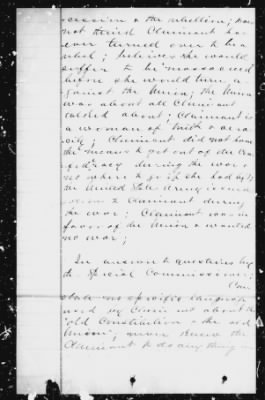 cession & the rebellion; does
not think Claimant has
ever turned over to be a
rebel; believes she would
suffer to be massacred
before she would turn a-
gainst the Union; the Union
was about all Claimant
talked about; Claimant is
a woman of truth & vera-
city; Claimant did not have
the means to get out of the Con-
federacy during the war &
not where to go if she had by
the United States Army is
to Claimant during
the war; Claimant was in
favor of the Union & wanted
no war;
In answer to questions by
the Special Commissioner;
Can
state no specific language
used by Claim about the
"old Constitution & the old
Union"; never knew the
Claimant to do anything